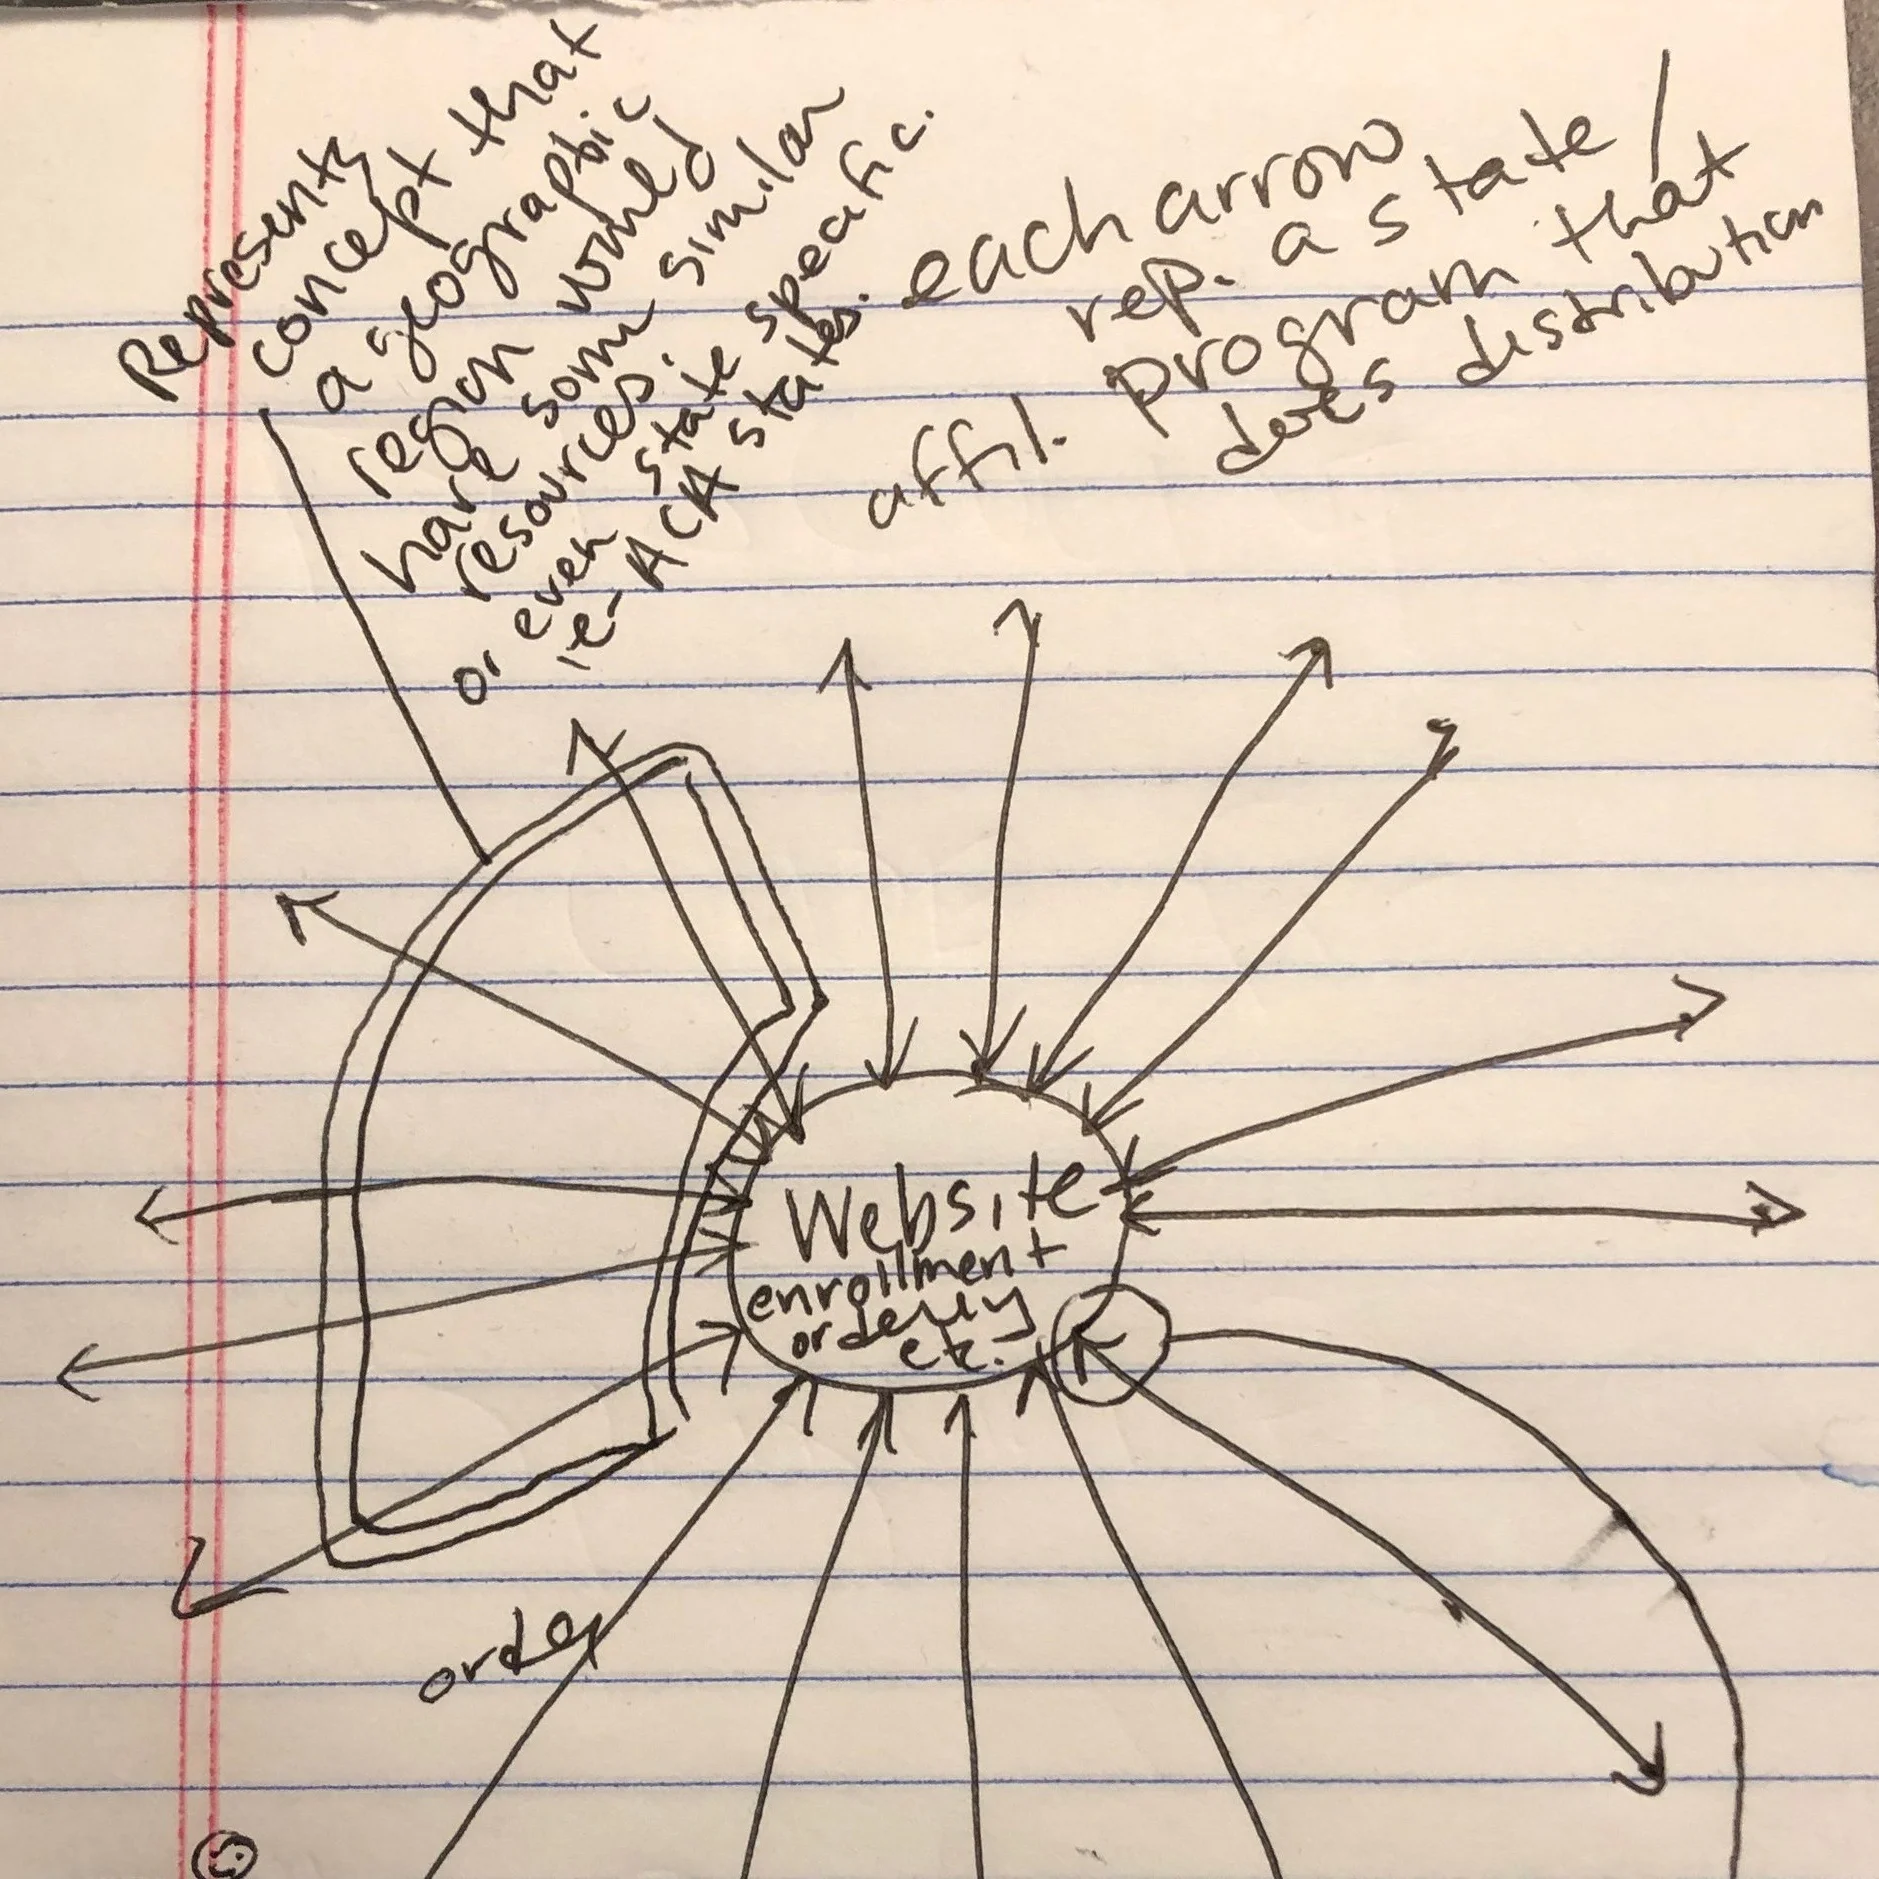 Represents
concept that
a geographic
region would
have some similar
resources.
or even state specific.
ie- ACA states.
each arrow
rep. a state /
affil. program that
does distribution
Website
enrollment
ordering
etc.
order